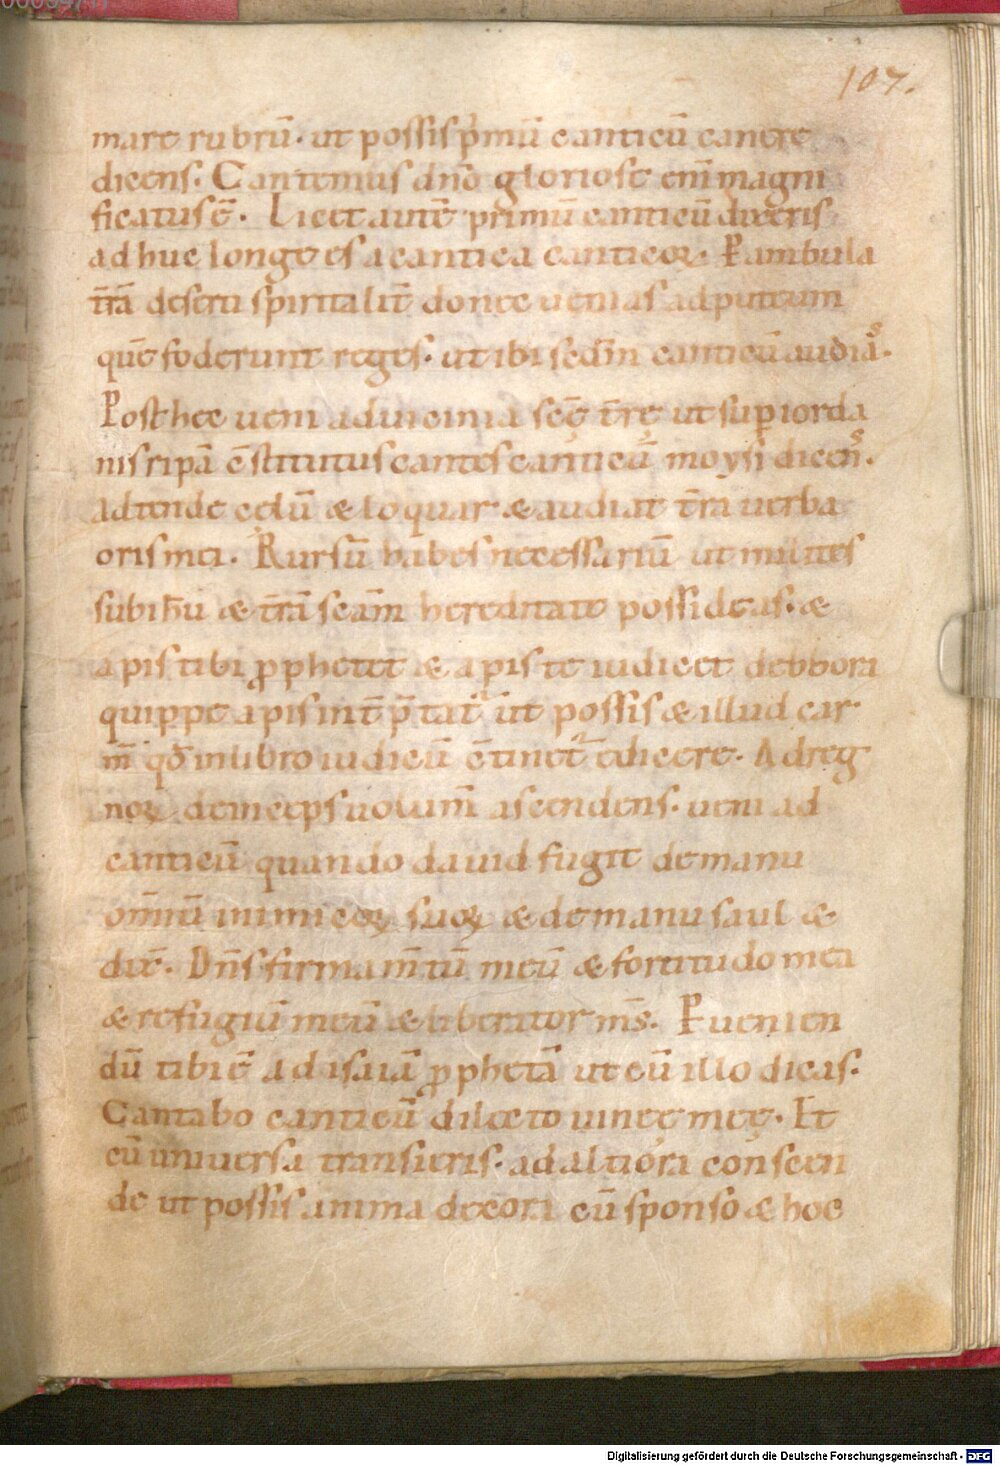 107.
mare rubrū. ut possis p̄mū canticū canere
dicens. Cantemus dn̄o gloriose enī magni
ficatus ē. Licet autē primū canticū dixeris
adhuc longe es a cantica canticoꝝ. Pambula
t̄rā deserti sp̄iritalit̄ donec venias ad puteum
quē foderunt reges. ut ibi sedm̄ canticū audiās.
Post hec veni ad vicinia sc̄ę t̄rę ut sup iorda
nis ripā c̄stitutus cantes canticū moysi dicen̄s.
adtende celū & loquar & audiat t̄ra verba
oris mei. Rursū habes necessariū ut milites
sub ih̄u & t̄rā sc̄am hereditate possideas. &
apis tibi ꝓphetet & apis te iudicet debbora
quippe apis int̄p̄tat̄ ut possis & illud car
m̄ qd̄ in libro iudicū c̄tinet̄ edicere. Ad reg
noꝝ deinceps volum̄ ascendens. veni ad
canticū quando david fugit de manu
om̄iū inimicoꝝ suoꝝ & de manu saul &
dix̄. Dn̄s firmam̄tū meū & fortitudo mea
& refugiū meū & liberator m̄s. Pvenien
dū tibi ē ad isaiā ꝓphetā ut cū illo dicas.
Cantabo canticū dilecto vineę meę. Et
cū universa transieris. ad altiora conscen
de ut possis anima decora cū sponso & hoc
Digitalisierung gefördert durch die Deutsche Forschungsgemeinschaft - DFG